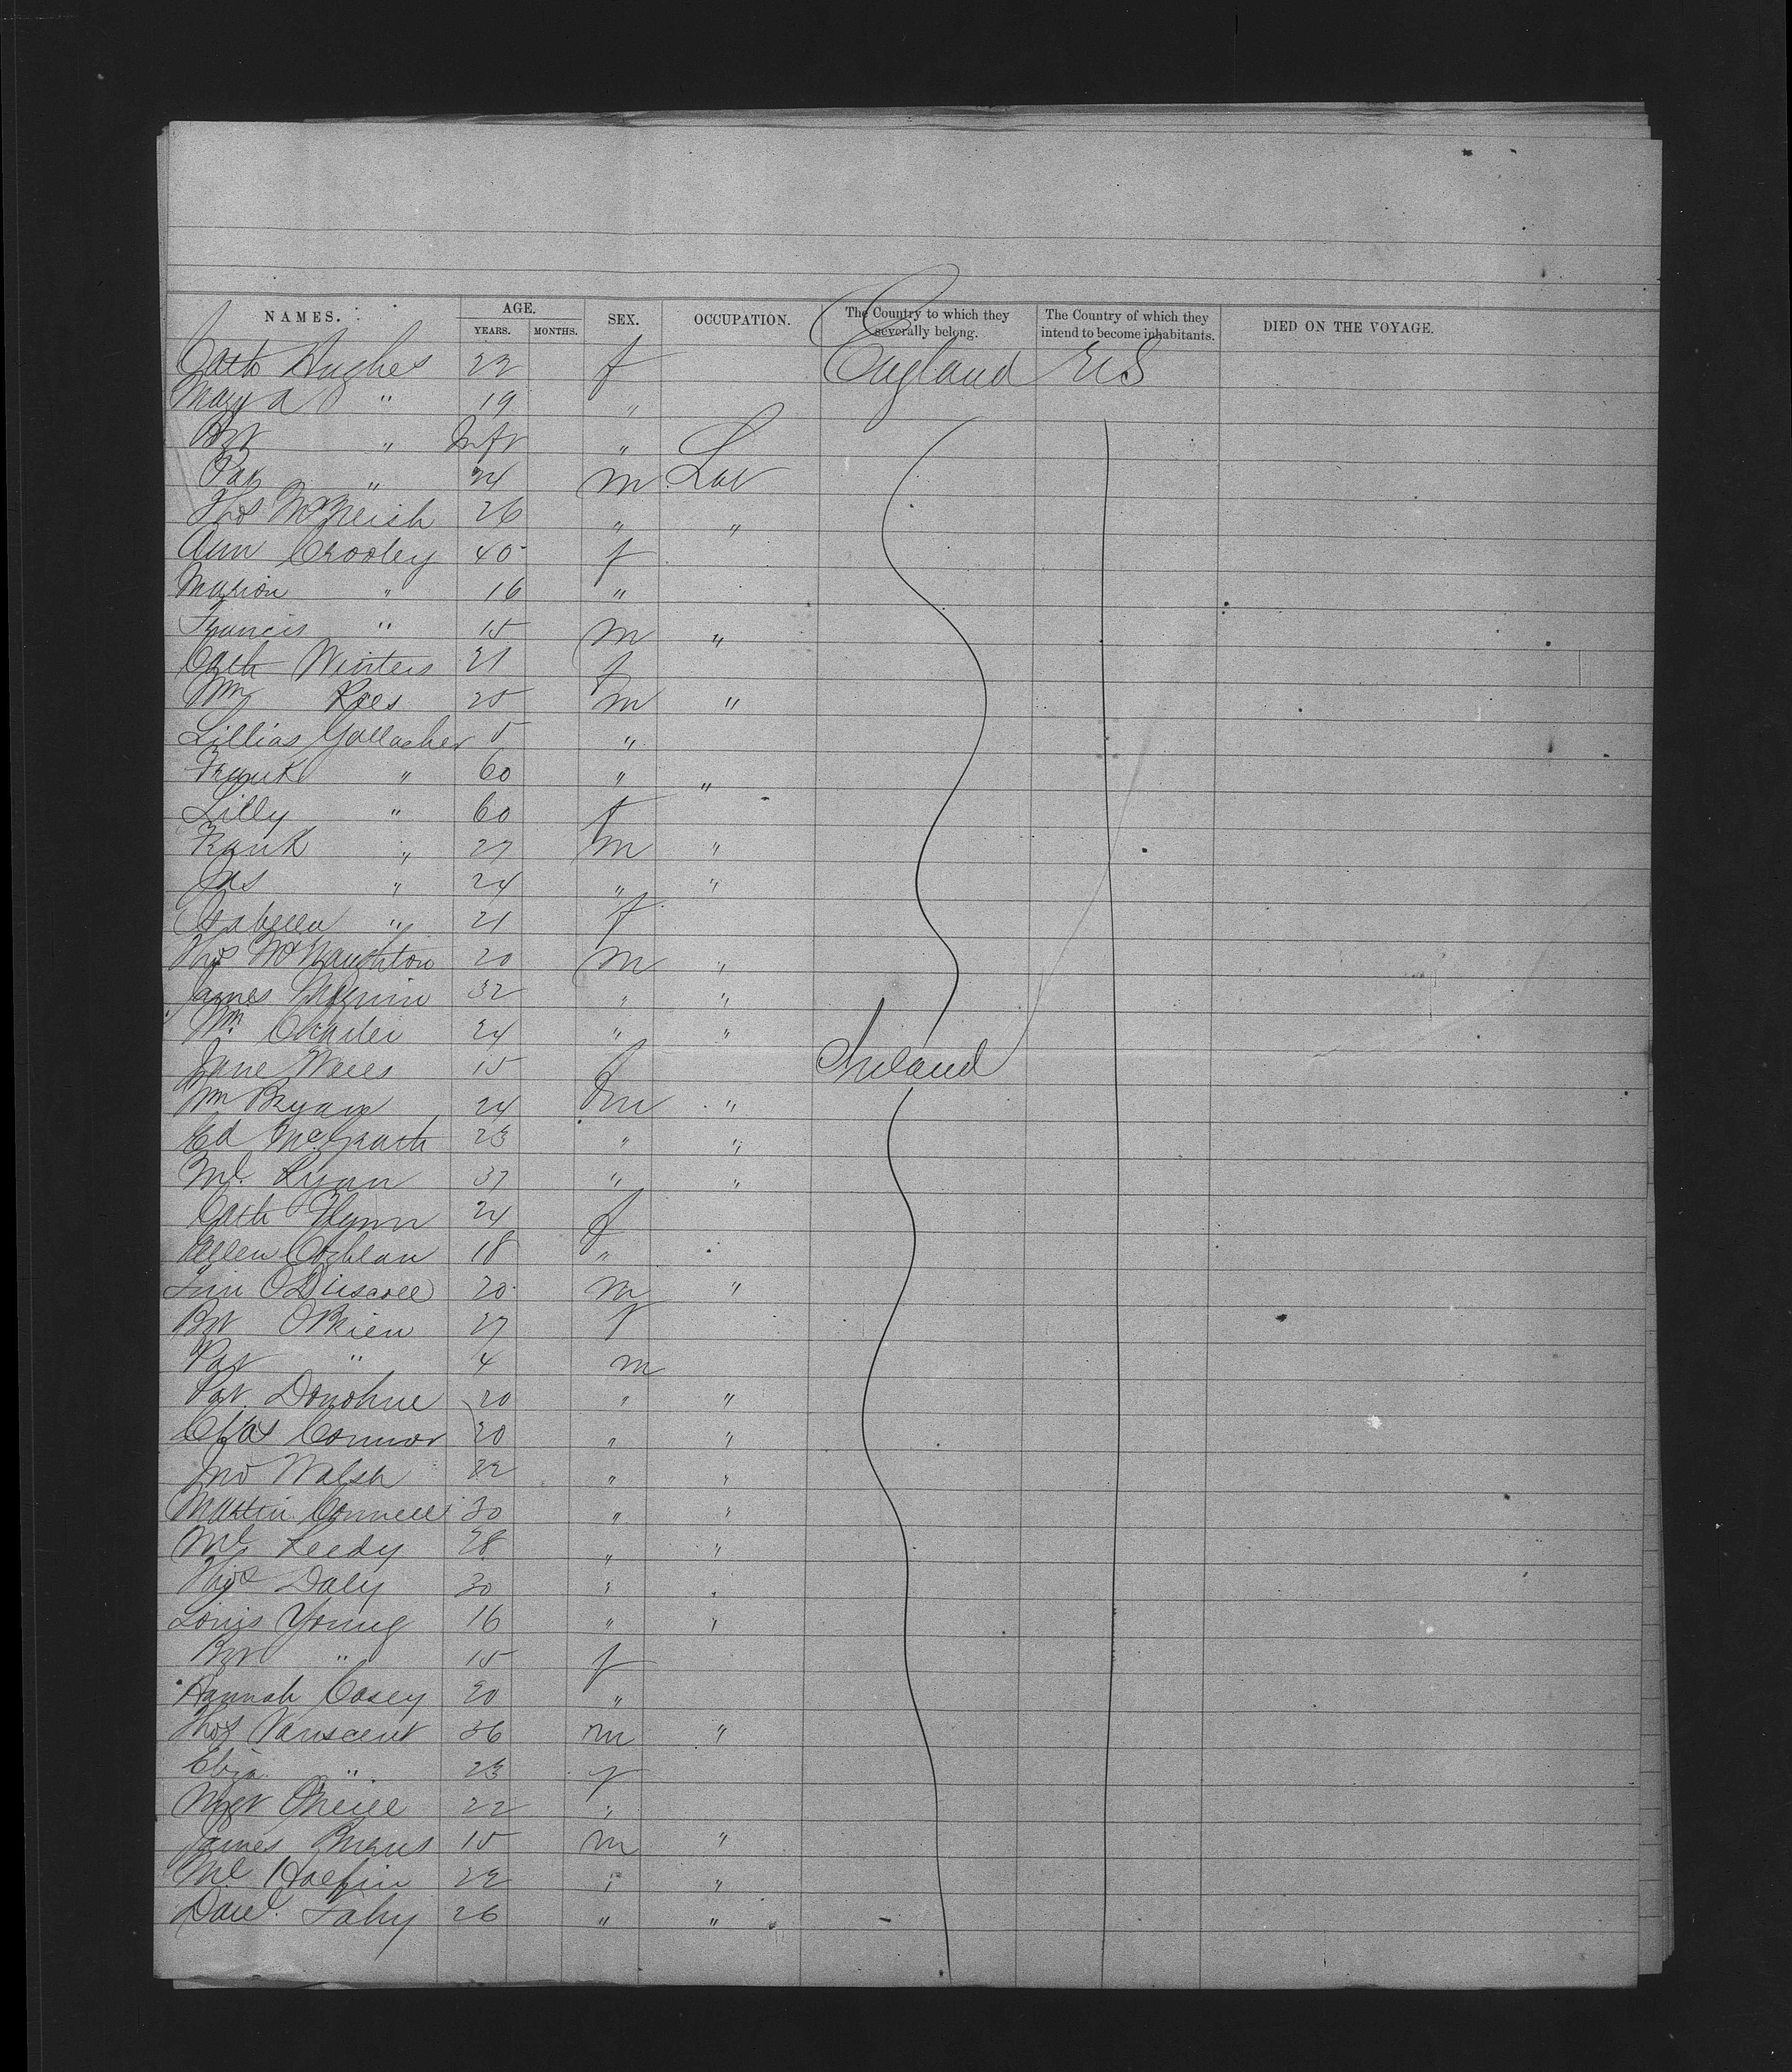 NAMES. AGE. SEX. OCCUPATION. The Country to which they severally belong. The Country of which they intend to become inhabitants. DIED ON THE VOYAGE.
YEARS. MONTHS.
Cath Hughes 22 f England US
Mary A " 19 "
Brt " Inft "
Pat " 24 m Lab
Thos McNeish 26 " "
Ann Crooley 40 f
Marion " 16 "
Francis " 15 m "
Cath Winters 21 f
Wm Rees 25 m "
Lillias Gallagher 5 "
Frank " 60 " "
Lilly " 60 f
Frank " 27 m "
Jas " 24 " "
Isabella " 21 f
Thos McNaughton 20 m "
James 32 " "
Wm 24 " "
Jane 15 f Ireland
Wm Bryan 24 m "
Ed McGrath 23 " "
Ml. Ryan 37 " "
Cath Flynn 24 f
Ellen Coghlan 18 "
Tim O'Driscoll 20 m "
Brt OBrien 27 f
Pat " 4 m
Pat Donohue 20 " "
Chas Connor 20 " "
Jno Walsh 22 " "
Martin Connell 30 " "
Ml Reedy 28 " "
Thos Daly 30 " "
Louis Young 16 " "
Brt " 15 f
Hannah Casey 20 "
Thos Vanscent 36 m "
Eliza " 23 f
Mgt ONeill 22 "
James Burns 15 m "
Ml Halpin 22 " "
Danl. Fahy 26 " "